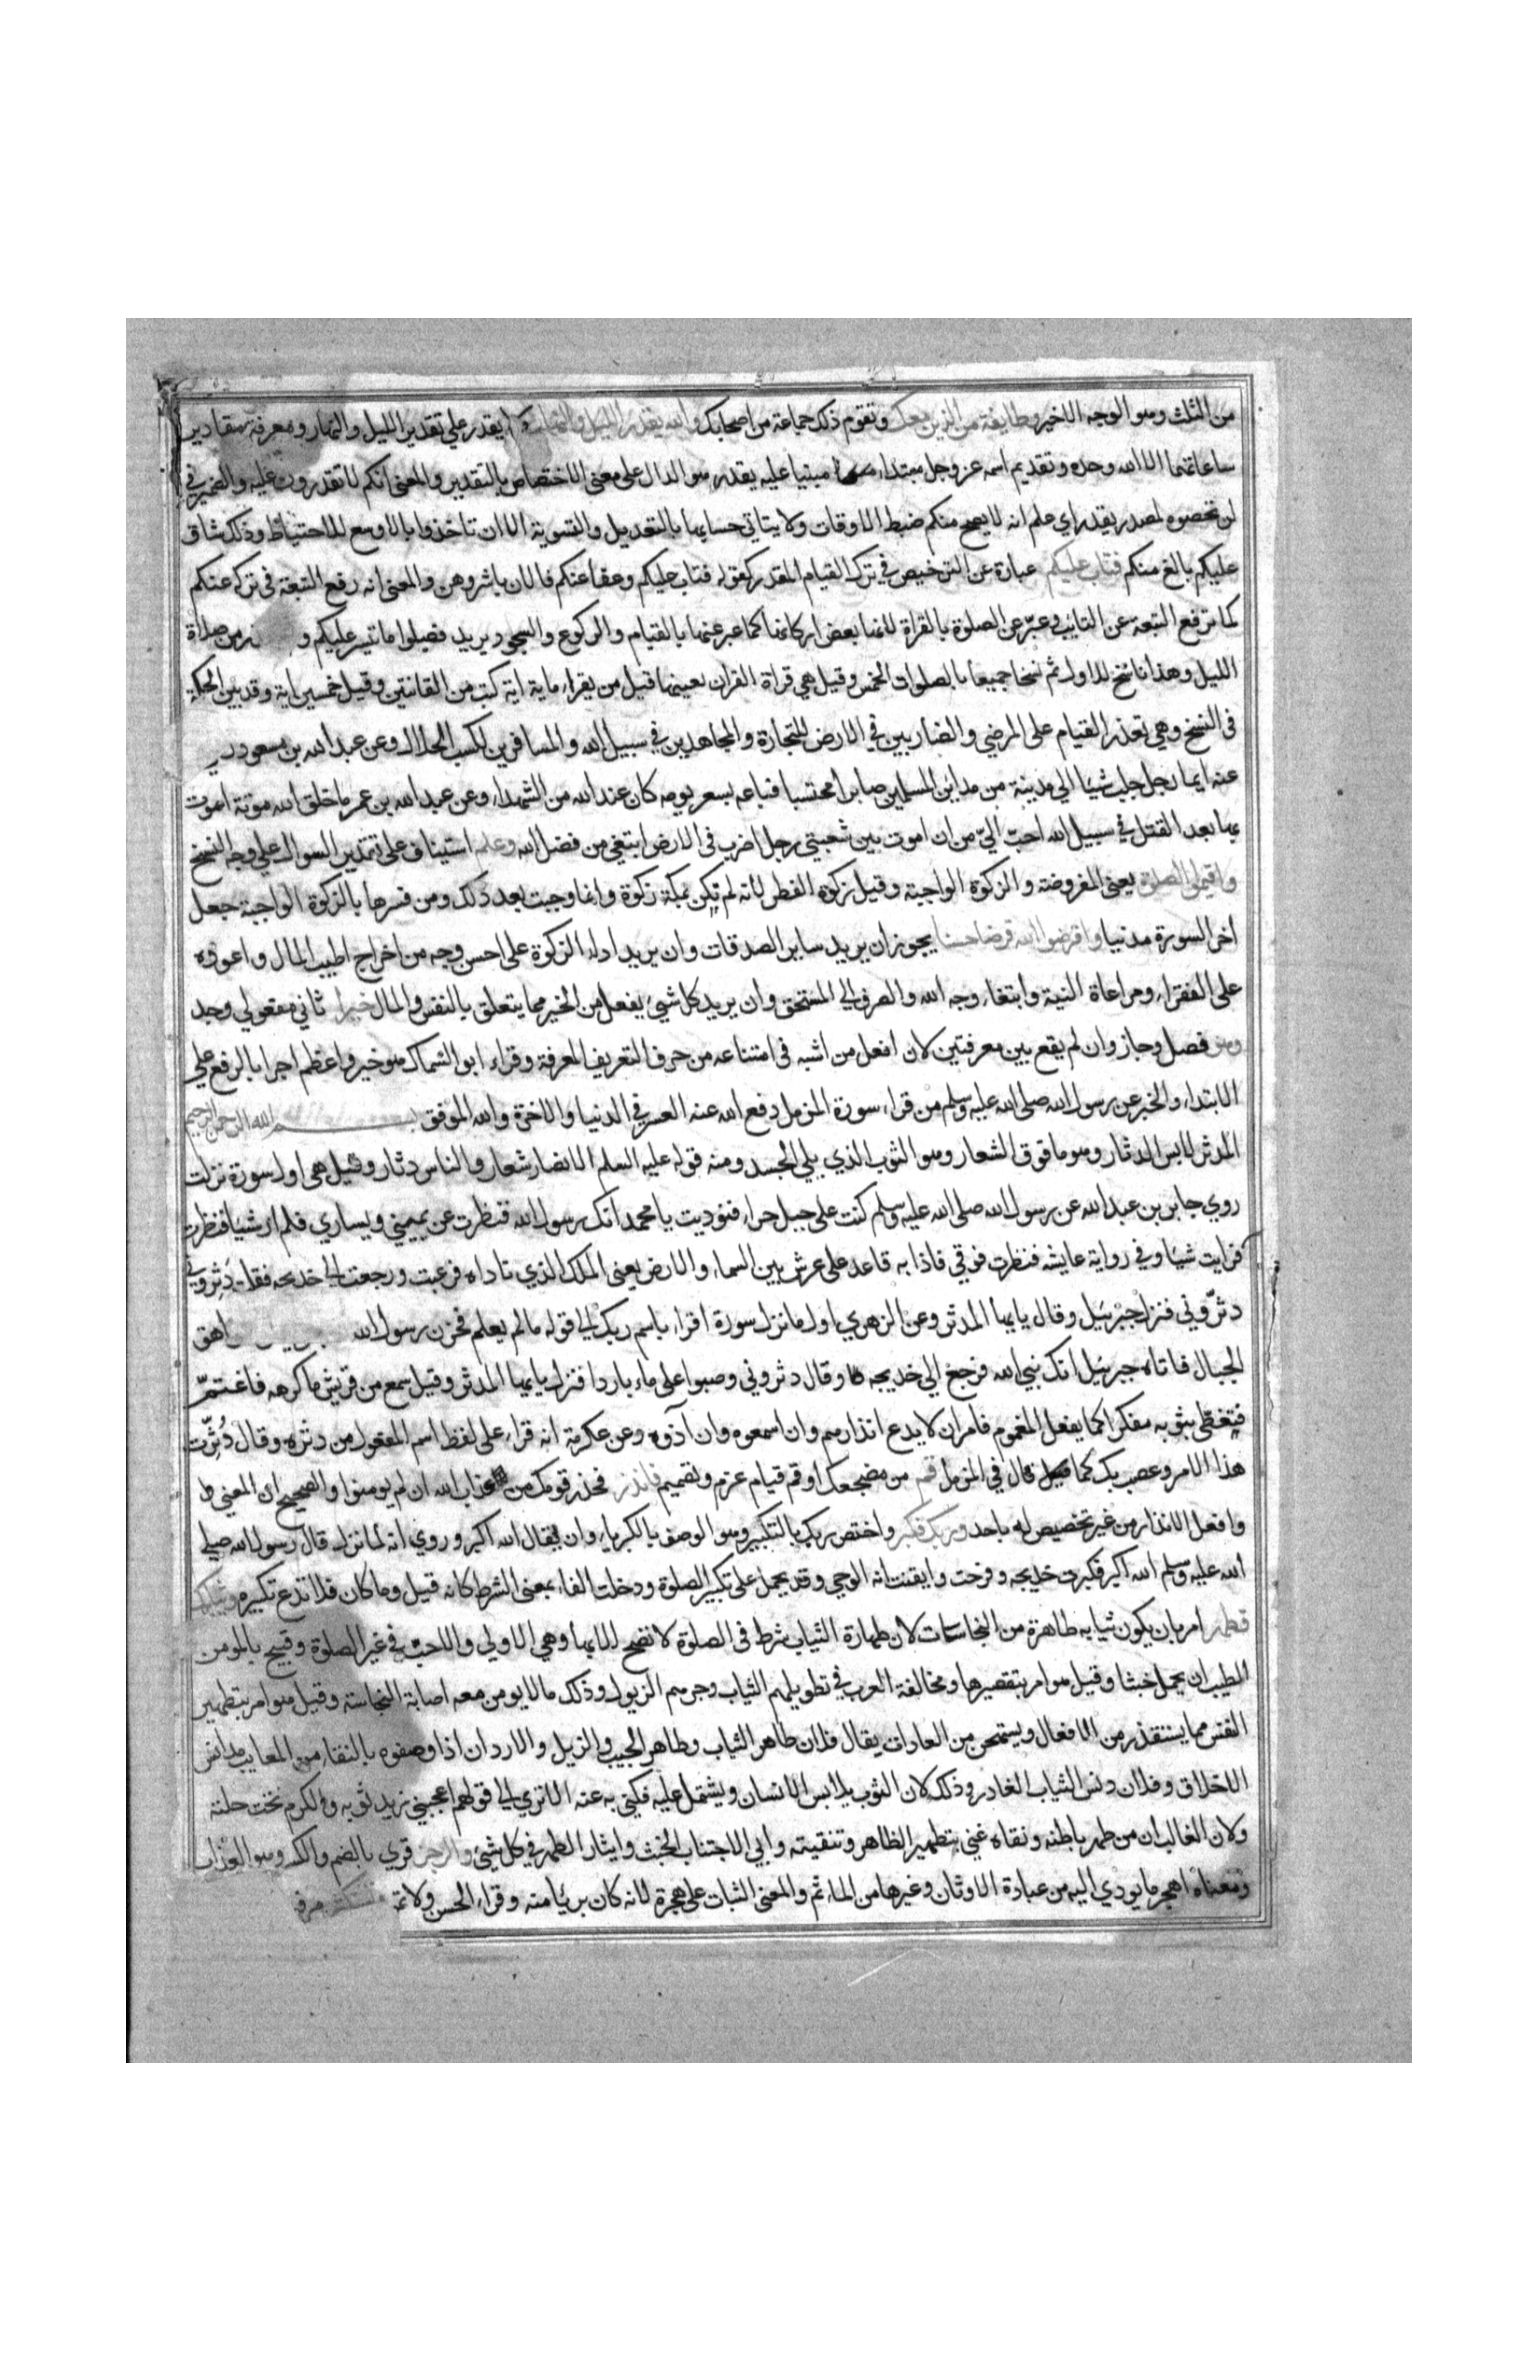 من الثلث وهو الوجه الاخير وطايفة من الذين معك وتقوم ذلك جماعة من اصحابك والله يقدر الليل والنهار ولا يقدر علي تقدير الليل والنهار ومعرفة مقادير
ساعاتهما الا الله وحده وتقديم اسمه عز وجل مبتداء مبنيا عليه يقدر هو الدال على معنى الاختصاص بالتقدير والمعنى انكم لا تقدرون عليه والضمير في
لن تحصوه لمصدر يقدر اي علم انه لا يصح منكم ضبط الاوقات ولا يتاتي حسابها بالتعديل والتسوية الا ان تاخذوا بالاوسع للاحتياط وذلك شاق
عليكم بالغ منكم فتاب عليكم عبارة عن الترخيص في ترك القيام المقدر كقوله فتاب عليكم وعفا عنكم فالان باشروهن والمعنى انه رفع التبعة في تركه عنكم
كما ترفع التبعة عن التايب وعبّر عن الصلوة بالقراة لانها بعض اركانها كما عبر عنها بالقيام والركوع والسجود يريد فصلوا ما تيسر عليكم و من صلاة
الليل وهذا ناسخ للاول ثم نسخا جميعا بالصلوات الخمس وقيل هي قراة القران بعينها قيل من يقراء ماية اية كتب من القانتين وقيل خمسين اية وقد بين الحكمة
في النسخ وهي تعذر القيام على المرضي والضاربين في الارض للتجارة والمجاهدين في سبيل الله والمسافرين لكسب الحلال وعن عبد الله بن مسعود
عنه ايما رجل جلب شيا الي مدينة من مداين المسلمين صابرا محتسبا فباعه بسعر يومه كان عند الله من الشهداء وعن عبد الله بن عمر ما خلق الله موتة اموت
بها بعد القتل في سبيل الله احبّ اليّ من ان اموت بين شعبتي رجل اضرب في الارض ابتغي من فضل الله وعلم استيناف على تقدير السوال علي وجه النسخ
واقيموا الصلوة يعني المفروضة والزكوة الواجبة وقيل زكوة الفطر لانه لم تكن بمكة زكوة وانما وجبت بعد ذلك ومن فسرها بالزكوة الواجبة جعل
اخر السورة مدنيا واقرضوا الله قرضا حسنا يجوز ان يريد ساير الصدقات وان يريد اداء الزكوة على احسن وجه من اخراج اطيب المال واعوده
على الفقراء ومراعاة النية وابتغاء وجه الله والصرف الي المستحق وان يريد كل شيئ يفعل من الخير مما يتعلق بالنفس والمال خيرا ثاني مفعولي وجد
وهو فصل وجاز وان لم يقع بين معرفتين لان افعل من اشبه في امتناعه من حرف التعريف المعرفة وقراء ابو السماك هو خير واعظم اجرا بالرفع علي
الابتداء والخبر عن رسول الله صلى الله عليه وسلم من قراء سورة المزمل دفع الله عنه العسر في الدنيا والاخرة والله الموفق بسم الله الرحمن الرحيم
المدثر لابس الدثار وهو ما فوق الشعار وهو الثوب الذي يلي الجسد ومنه قوله عليه السلم الانصار شعار والناس دثار وقيل هي اول سورة نزلت
روي جابر بن عبد الله عن رسول الله صلى الله عليه وسلم كنت على جبل حراء فنوديت يا محمد انك رسول الله فنظرت عن يميني ويساري فلم ار شيا فنظرت
فرايت شيا وفي رواية عايشه فنظرت فوقي فاذا به قاعد على عرش بين السماء والارض يعني الملك الذي ناداه فرعبت ورجعت الي خديجه فقلت دثروني
دثّروني فنزل جبرئيل وقال يا يها المدثر وعن الزهري اول ما نزل سورة اقراء باسم ربك الي قوله ما لم يعلم فحزن رسول الله
الجبال فاتاه جبرئيل انك نبي الله فرجع الي خديجه وقال دثروني وصبوا على ماء باردا فنزل يا يها المدثر وقيل سمع من قريش ما كرهه فاغتمّ
فتغطّى بثوبه مفكرا كما يفعل المغموم فامر ان لا يدع انذارهم وان اسمعوه وان آذوه وعن عكرمة انه قراء على لفظ اسم المفعول من دثره وقال دُثِّرت
هذا الامر وعصب بك كما قال في المزمل قم من مضجعك او قم قيام عزم وتصميم فانذر فحذر قومك من عذاب الله ان لم يومنوا والصحيح ان المعنى
وافعل الانذار من غير تخصيص له باحد وربك فكبر واختص ربك بالتكبير وهو الوصف بالكبرياء وان يقال الله اكبر وروي انه لما نزل قال رسول الله صلي
الله عليه وسلم الله اكبر فكبرت خديجه وفرحت وايقنت انه الوحي وقد يحمل على تكبير الصلوة ودخلت الفاء بمعنى الشرط كانه قيل وما كان فلا تدع تكبيره وثيابك
فطهر امر بان يكون ثيابه طاهرة من النجاسات لان طهارة الثياب شرط في الصلوة لا تصح الا بها وهي الاولي والاحب في غير الصلوة وقبيح بالمومن
الطيب ان يحمل خبثا وقيل هو امر بتقصيرها ومخالفة العرب في تطويلهم الثياب وجرهم الذيول وذلك ما لا يومن معه اصابة النجاسة وقيل هو امر بتطهير
النفس مما يستقذر من الافعال ويستهجن من العادات يقال فلان طاهر الثياب وطاهر الجيب والذيل والاردان اذا وصفوه بالنقاء من المعايب مدانس
الاخلاق وفلان دنس الثياب الغادر وذلك لان الثوب يلابس الانسان ويشتمل عليه فكني به عنه الا تري الي قولهم اعجبني زيد ثوبه والكرم تحت حلته
ولان الغالب ان من طهر باطنه ونقاه عني بتطهير الظاهر وتنقيته وابي الا اجتناب الخبث وايثار الطهر في كل شيئ والرجز قري بالضم والكسر وهو العذاب
ومعناه اهجر ما يودي اليه من عبادة الاوثان وغيرها من الماثم والمعنى الثبات على هجره لانه كان بريئا منه وقراء الحسن ولا